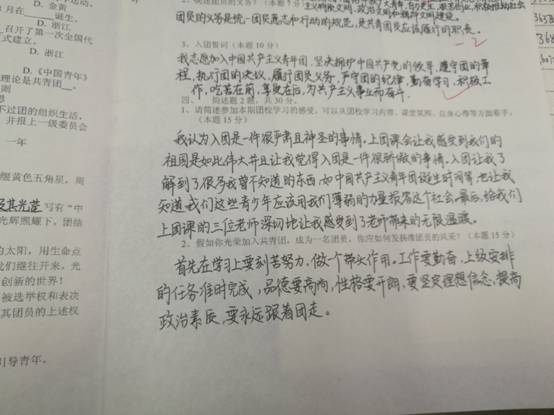 D. 金黄
在______诞生。
D. 浙江
召开了第一次全国代
式建立。
D. 浙江
D.《中国青年》
理论是共青团___
则
思
不过团的组织生活,
并报上一级委员会
一年
缀黄色五角星,周
及其光芒 写有“中
光辉照耀下,团结
白太阳,用生命点
我们继往开来,光
创新的世界!
被选举权和表决
其团员的上述权
引导青年。
团员的义务是统一团员意志和行动的规范,是共青团员应该履行的职责。
-2
3、入团誓词(本题 10 分)
我志愿加入中国共产主义青年团,坚决拥护中国共产党的领导,遵守团的章
程,执行团的决议,履行团员义务,严守团的纪律,勤奋学习,积极工
作,吃苦在前,享受在后,为共产主义事业而奋斗.
四、 简述题 2 题,共 30 分。
1、请简述参加本期团校学习的感受,可以从团校学习内容、课堂氛围、自身心得等方面着手。
(本题 15 分)
我认为入团是一件很严肃且神圣的事情。上团课会让我感受到我们的
祖国是如此伟大并且让我觉得入团是一件很骄傲的事情。入团让我了
解到了很多我曾不知道的东西,如中国共产主义青年团诞生时间等,也让我
知道我们这些青少年应该用我们薄弱的力量报答这个社会。最后,给我们
上团课的三位老师深切地让我感受到了老师带来的无限温暖。
2、假如你光荣加入共青团,成为一名团员,你应如何发扬准团员的风采?(本题 15 分)
首先在学习上要刻苦努力,做个带头作用。工作要勤奋,上级安排
的任务准时完成,品德要高尚,性格要开朗,要坚定理想信念,提高
政治素质,要永远跟着团走。